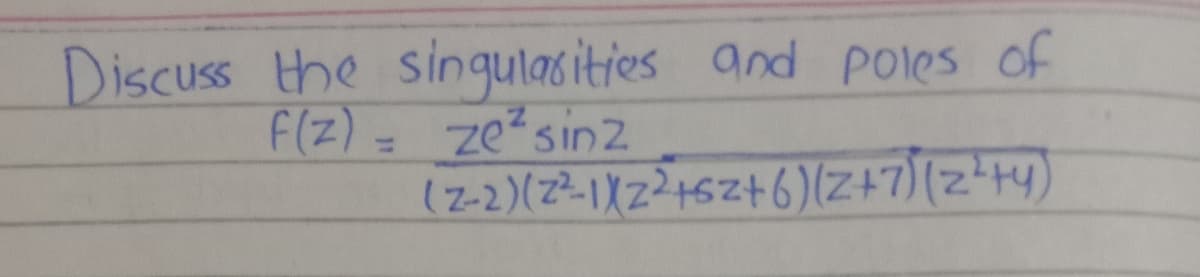 Discuss the singularities and poles of
f(z) = ze^z sinz
(z-2)(z²-1)(z²+5z+6)(z+7)(z²+4)